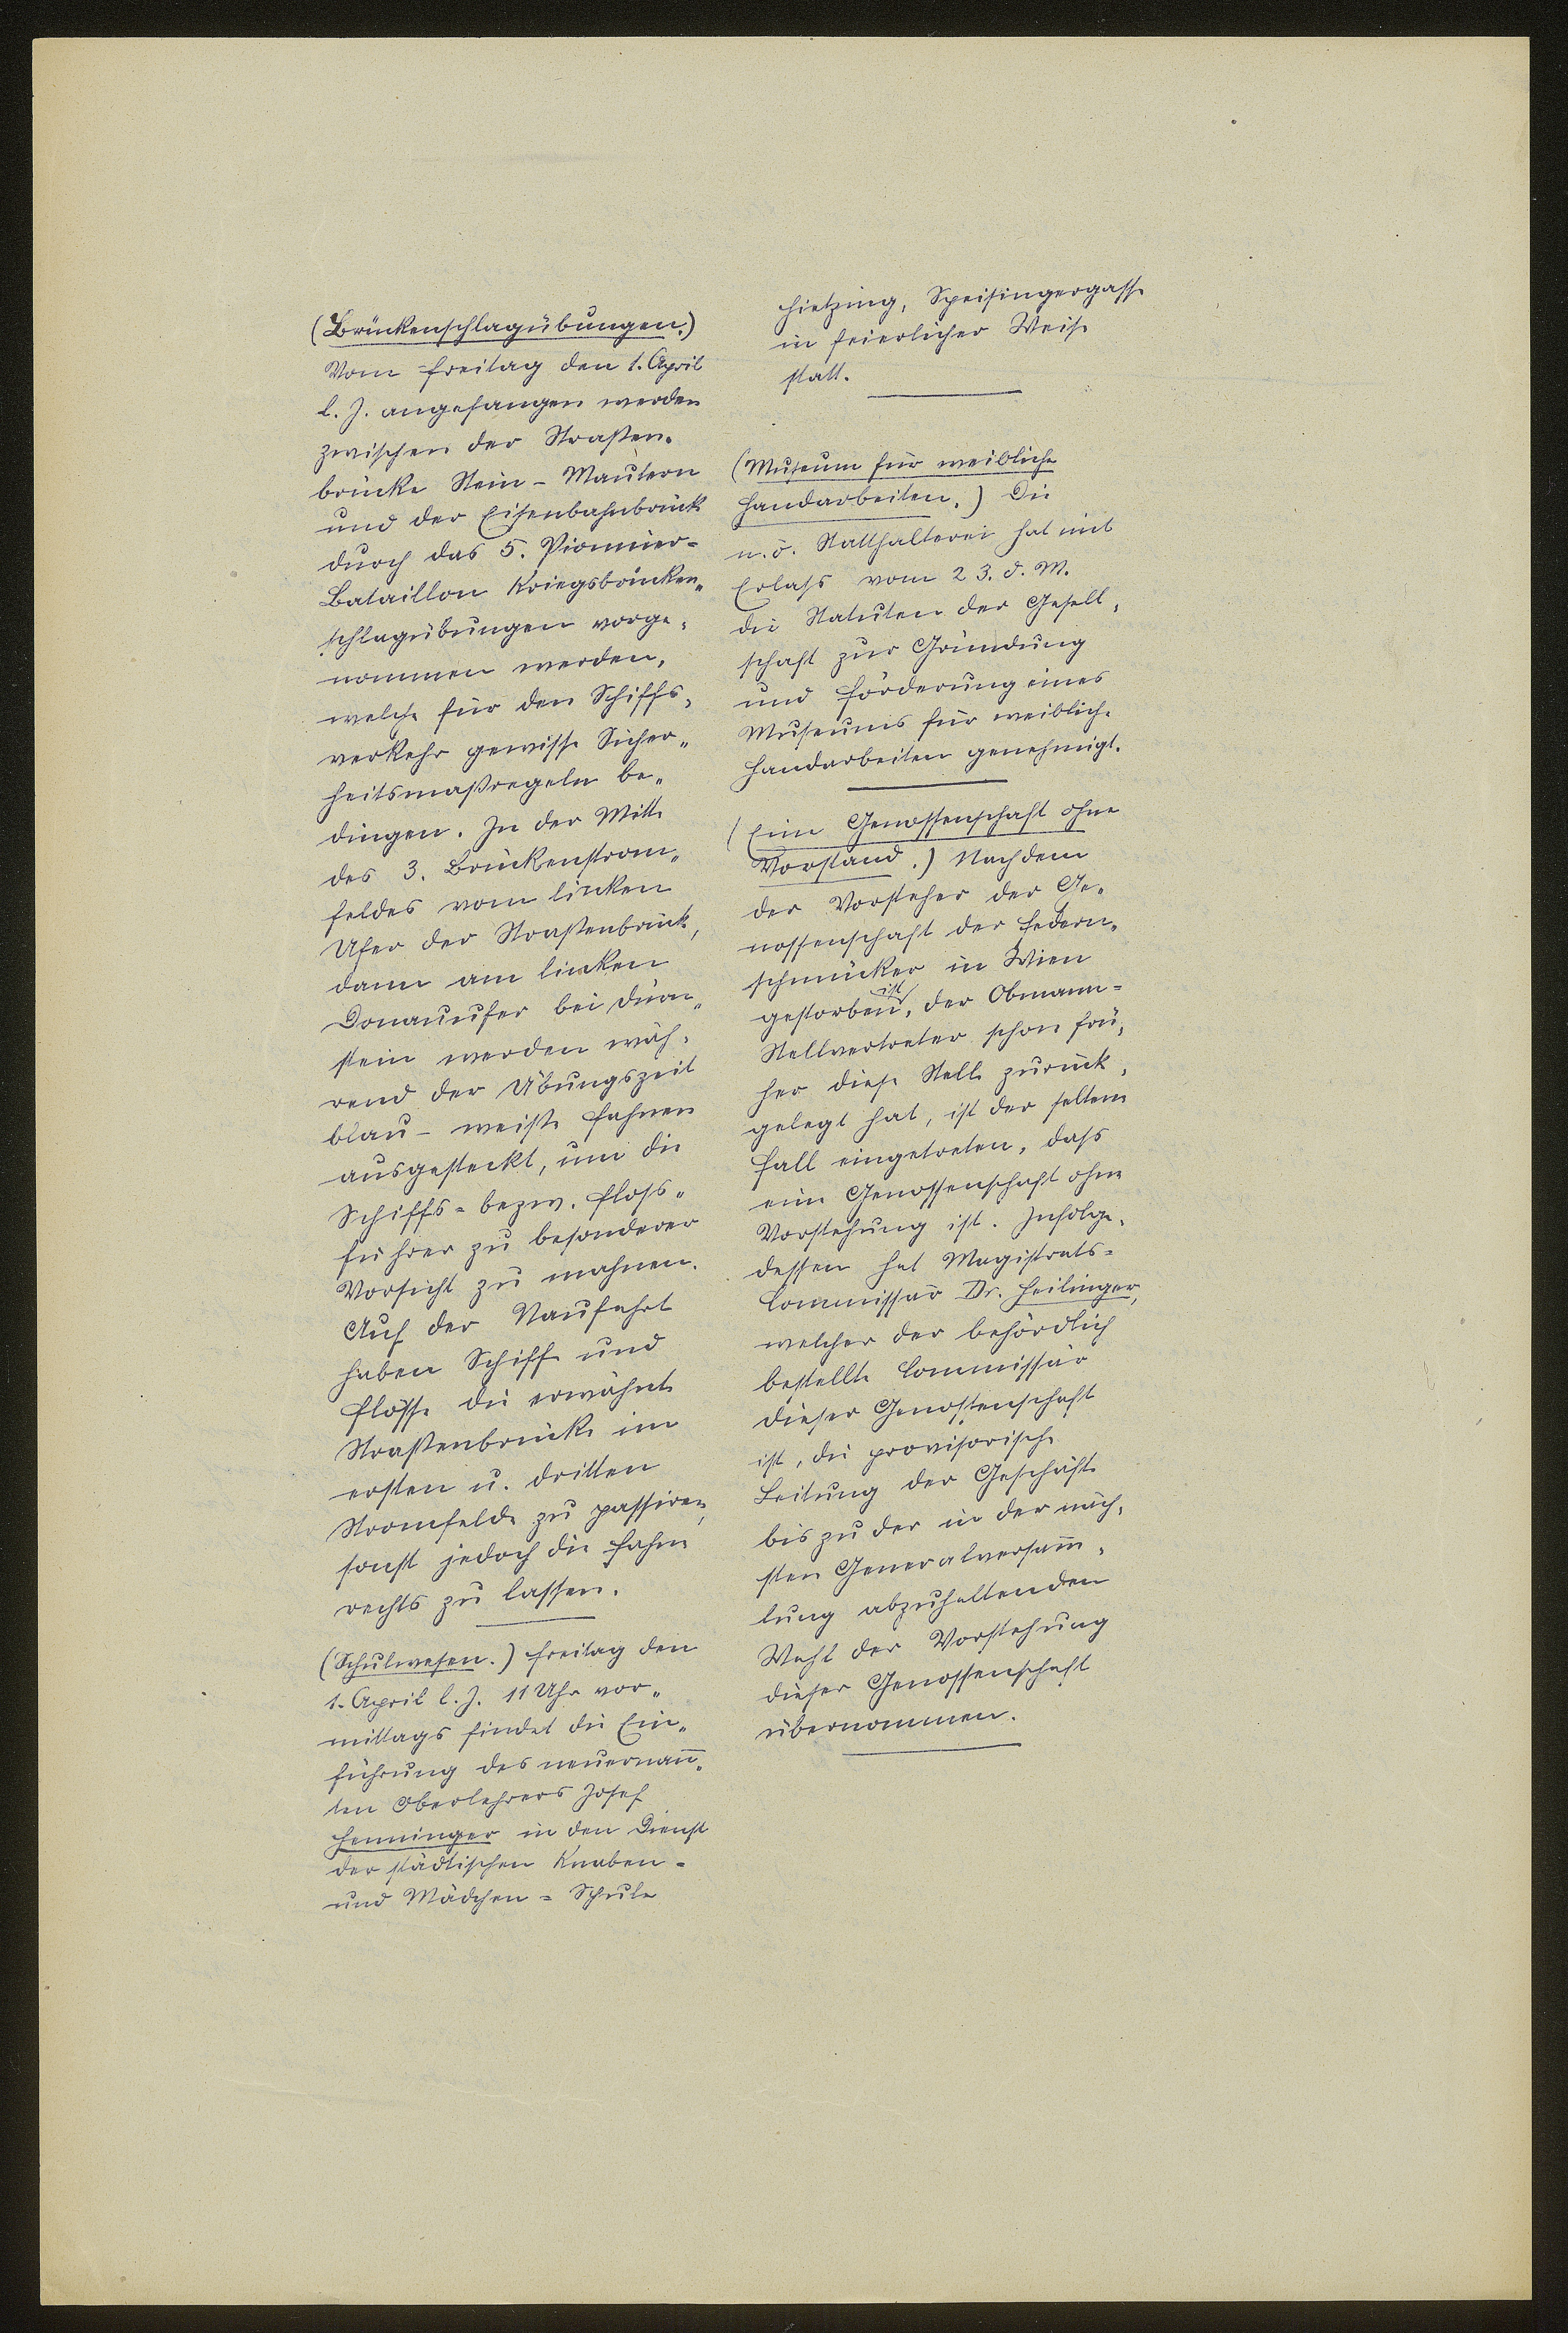 (Brückenschlagübungen.)
Vom Freitag den 1. April
l. J. angefangen werden
zwischen der Straßen-
brücke Stein - Mautern
und der Eisenbahnbrücke
durch das 5. Pionnier-
Bataillon Kriegsbrücken-
schlagübungen vorge-
nommen werden,
welche für den Schiffs-
verkehr gewisse Sicher-
heitsmaßregeln be-
dingen. In der Mitte
des 3. Brückenstrom-
feldes vom linken
Ufer der Straßenbrücke,
dann am linken
Donauufer bei Dürn-
stein werden wäh-
rend der Übungszeit
blau - weiße Fahnen
ausgesteckt, um die
Schiffs- bezw. Floss-
führer zu besonderer
Vorsicht zu mahnen.
Auf der Naufahrt
haben Schiffe und
Flösse die erwähnte
Straßenbrücke im
ersten u. dritten
Stromfelde zu passiren,
sonst jedoch die Fahne
rechts zu lassen.
(Schulwesen.) Freitag den
1. April l. J. 11 Uhr vor-
mittags findet die Ein-
führung des neuernan̄-
ten Oberlehrers Josef
Henninger in den Dienst
der städtischen Knaben-
und Mädchen-Schule
Hietzing, Speisingergasse
in feierlicher Weise
statt.
(Museum für weibliche
Handarbeiten.) Die
n. ö. Statthalterei hat mit
Erlass vom 23. d. M.
die Statuten der Gesell-
schaft zur Gründung
und Förderung eines
Museums für weibliche
Handarbeiten genehmigt.
(Eine Genossenschaft ohne
Vorstand.) Nachdem
der Vorsteher der Ge-
nossenschaft der Federn-
schmücker in Wien
gestorben ist, der Obmann-
Stellvertreter schon frü-
her diese Stelle zurück-
gelegt hat, ist der seltene
Fall eingetreten, dass
eine Genossenschaft ohne
Vorstehung ist. Infolge-
dessen hat Magistrats-
Commissär Dr. Heilinger,
welcher der behördlich
bestellte Commissär
dieser Genossenschaft
ist, die provisorische
Leitung der Geschäfte
bis zu der in der näch-
sten Generalversam̄-
lung abzuhaltenden
Wahl der Vorstehung
dieser Genossenschaft
übernommen.